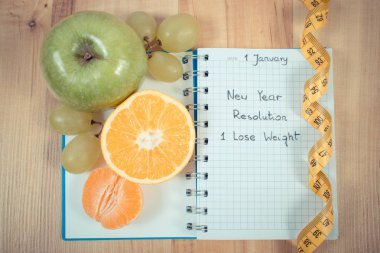 1 January
New Year
Resolution
1 Lose Weight